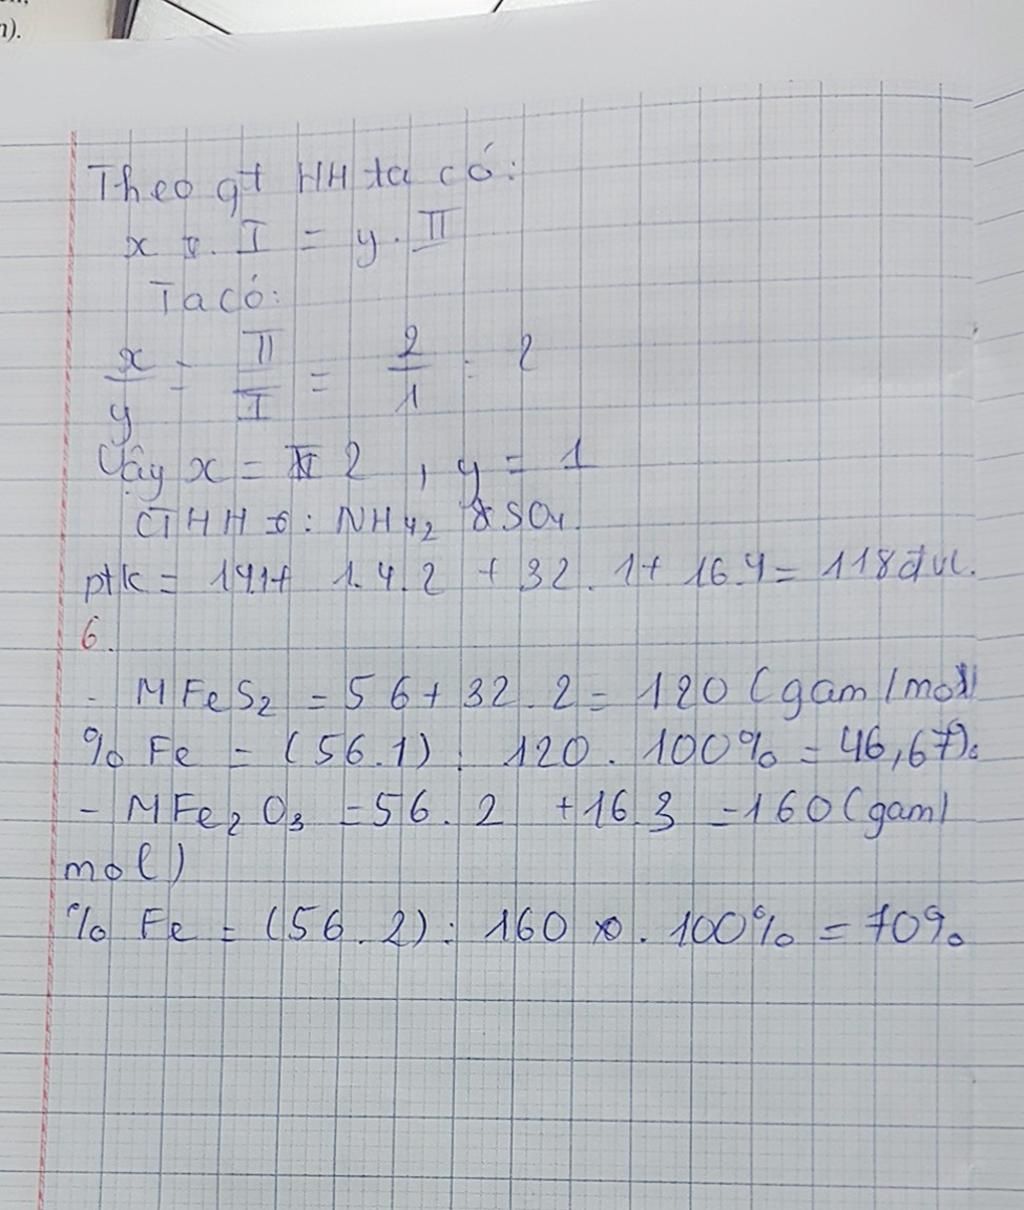 n).
Theo qt HH ta có:
x . I = y . II
Ta có:
x/y = II/I = 2/1 = 2
Vậy x = 2 , y = 1
CTHH : NH₄₂ SO₄.
ptk = 14.1+ 1.4.2 + 32.1+ 16.4 = 118 đvc.
6.
- MFeS₂ = 56 + 32.2 = 120 (gam/mol)
% Fe = (56.1) : 120 . 100% = 46,67%
- MFe₂O₃ = 56.2 +16.3 = 160 (gam/
mol)
% Fe = (56.2) : 160 . 100% = 70%